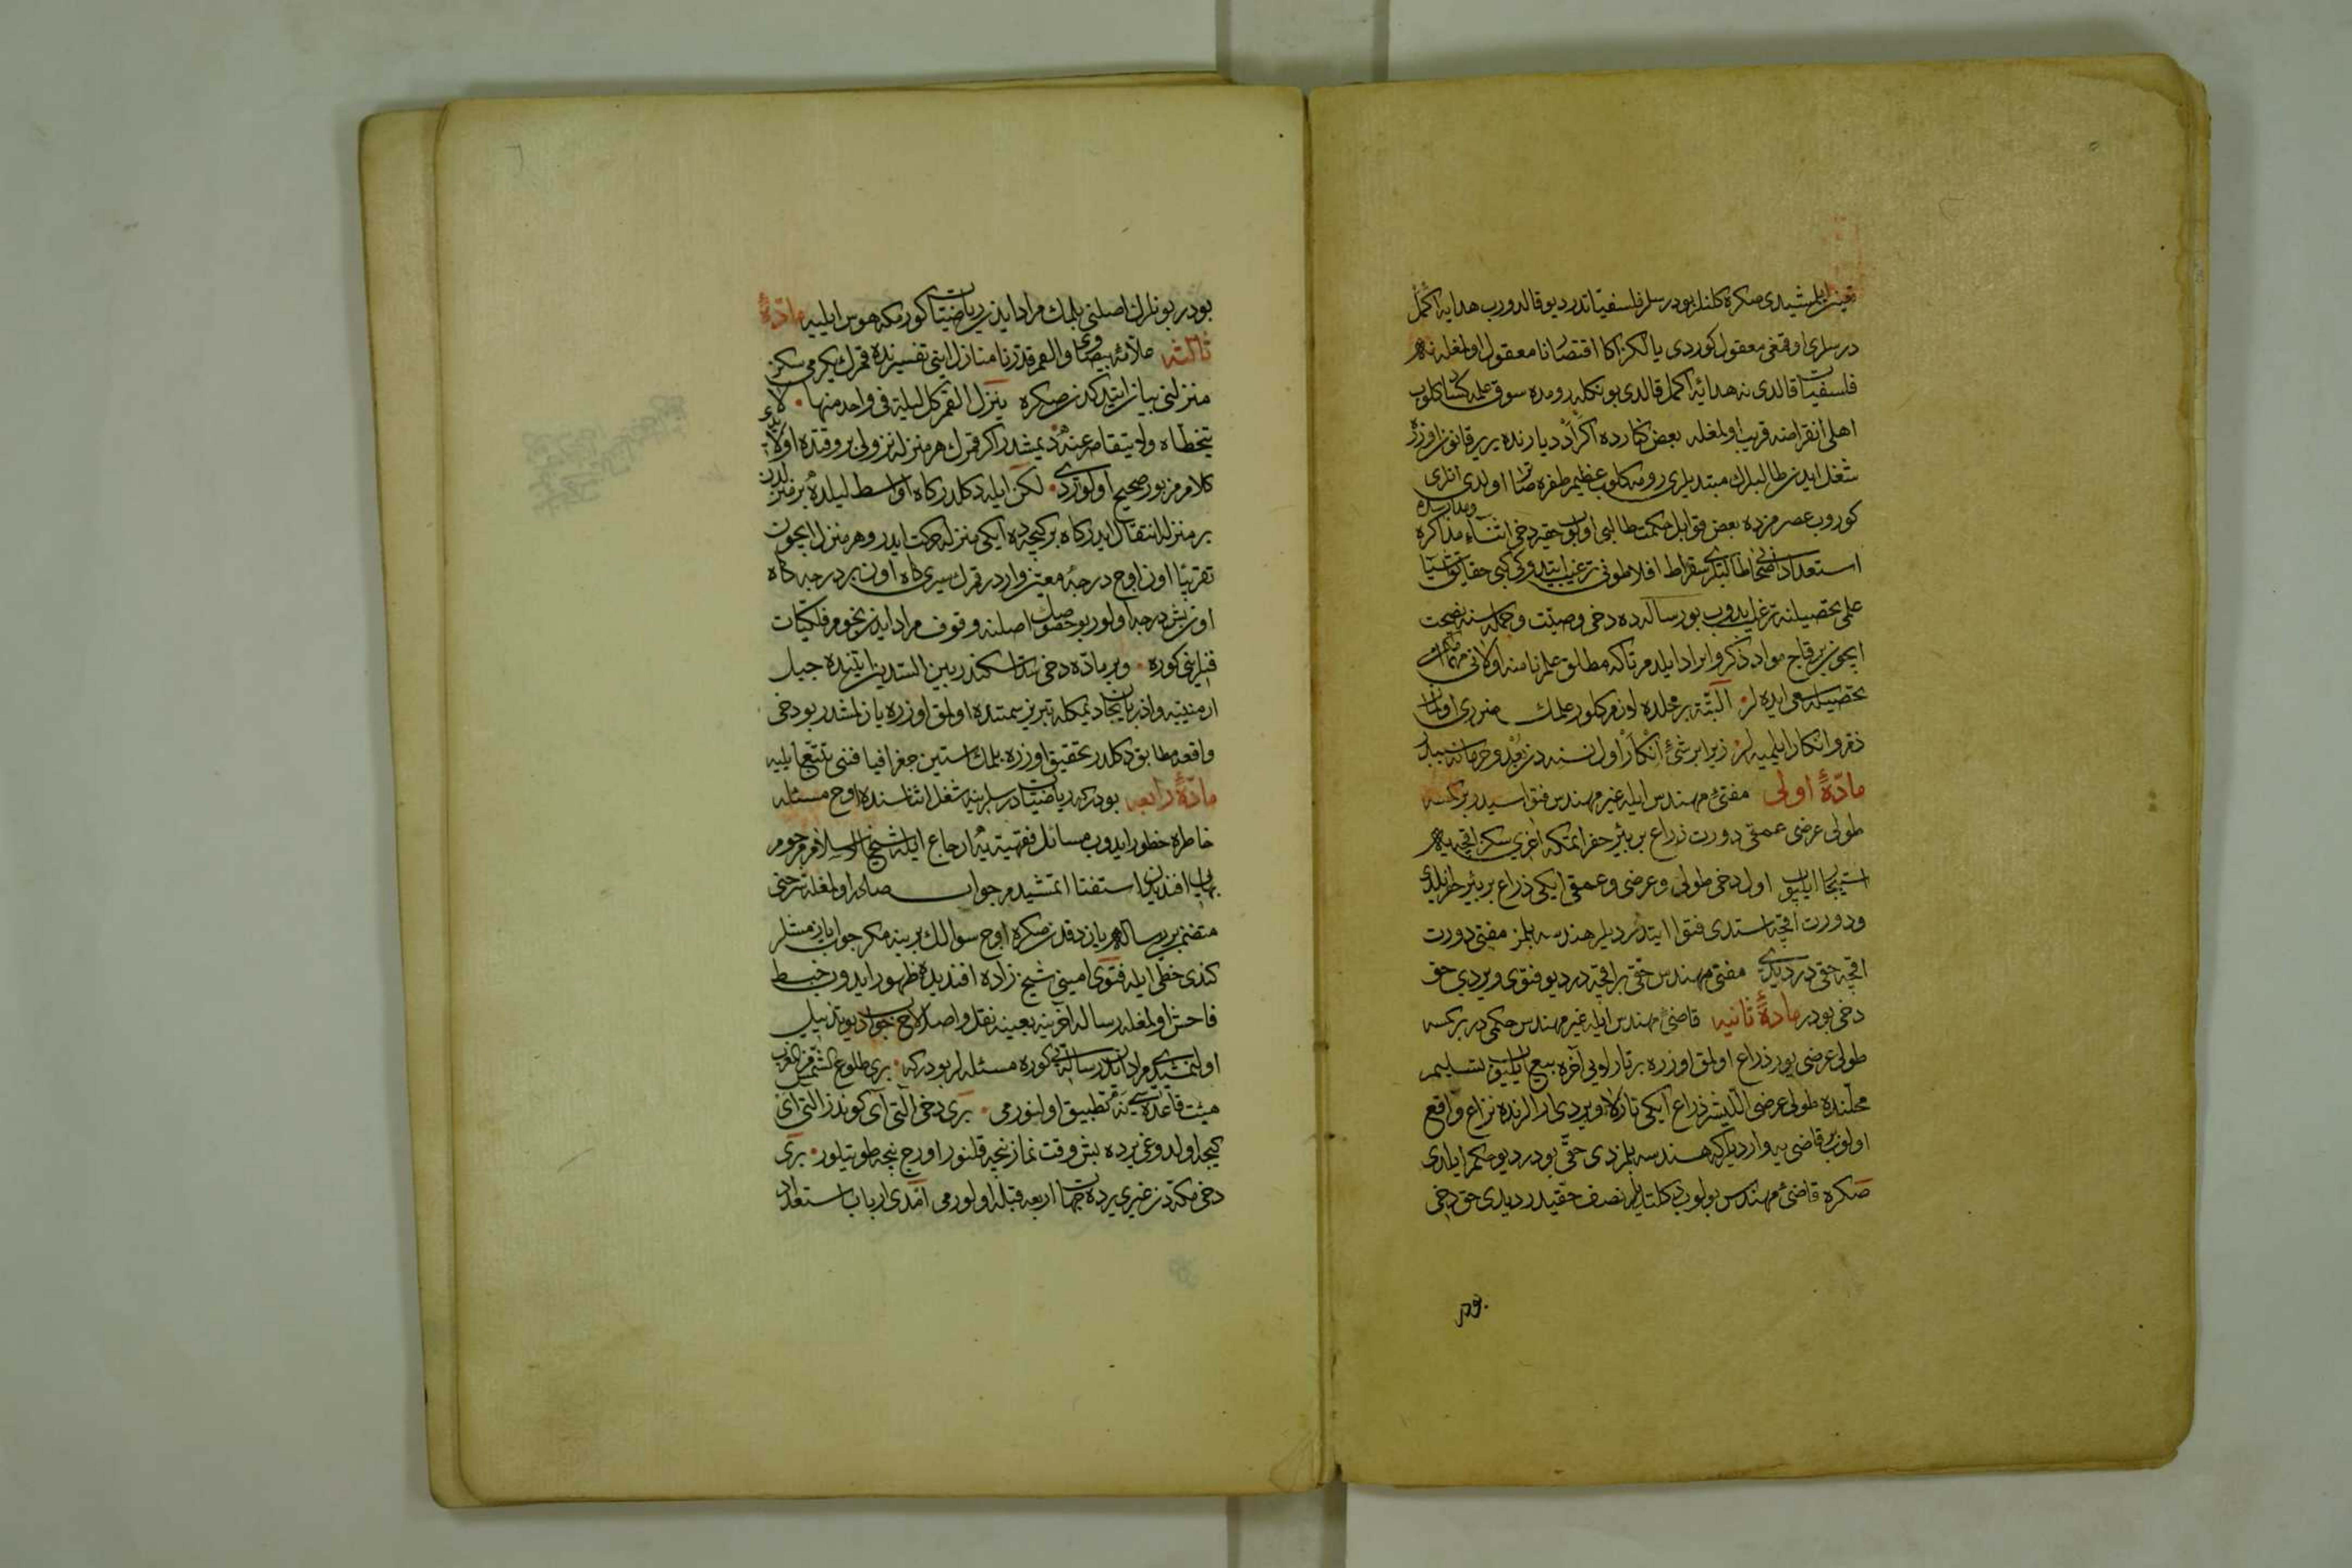 ایلمشیدی صکره کلنلر بو درسلر فلسفیاتدر دیو قالدروب هدایه اکمل
درسلری اوقتمغی معقول کوردی یالکز اکا اقتصار نا معقول اولمغله نه
فلسفیات قالدی نه هدایه اکمل قالدی بونکله رومده سوق علمه کساد کلوب
اهلی انقراضه قریب اولمغله بعض کنارده اکراد دیارنده یر یر قانون اوزره
شغل ایدن طالبلرک مبتدیلری رومه کلوب عظیم طفره صاتار اولدی انلری
کوروب عصرمزده بعض قوابل حکمت طالبی اولوب حقیر دخی اثناء مذاکره ومدارسه
استعداد اصحابی طالبلری سقراط افلاطونی ترغیب ایتدوکی کبی حقایق اشیا
علمی تحصیلنه ترغیب ایدوب بو رساله ده دخی وصیت وجمله سنه نصیحت
ایچون بر قاچ مواد ذکر وایراد ایلدم تا که مطلق علم نامنه اولانی مهما امکن
تحصیله سعی ایده لر البته بر محلده لازم کلور علمک ضرری اولماز
ذم وانکار ایلمیه لر زیرا بر شیء انکار اول نسنه دن بعد وحرمانه سببدر
مادهٔ اولی مفتئ مهندس ایله غیر مهندس فتواسیدر بر کمسه
طولی عرضی عمقی دورت ذراع بر بئر حفر اتمکه اغری سکز اقچه یه
استیجار ایلیوب اول دخی طولی وعرضی وعمقی ایکی ذراع بر بئر حفر ایلدی
ودورت اقچه استدی فتوا ایتدردیلر هندسه بلمز مفتی دورت
اقچه حقی در دیدی مفتی مهندس حقی بر اقچه در دیو فتوی ویردی حق
دخی بودر مادهٔ ثانیه قاضئ مهندس ایله غیر مهندس حکمی در بر کمسه
طولی عرضی یوز ذراع اولمق اوزره بر تارلایی آخره بیع ایلیوب تسلیم
محلنده طولی عرضی اللیشر ذراع ایکی تارلا ویردی ارالرنده نزاع واقع
اولوب بر قاضی یه واردیلر که هندسه بلمزدی حقی بودر دیو حکم ایلدی
صکره قاضئ مهندس بولوب دکلتدیلر نصف حقیدر دیدی حق دخی
بودر بونلرک اصلنی بلمک مراد ایدن ریاضیات کورمکه هوس ایلیه مادهٔ
ثالثه علامهٔ بیضاوی والقمر قدرناه منازل ایتی تفسیرنده قمرک یکرمی سکز
منزلنی بیان ایتدکدن صکره ینزل القمر کل لیلة فی واحد منها لا
یتخطاه ولا یتقاصر عنه دیمشدر اکر قمرک هر منزله نزولی بر وقتده اولایدی
کلام مزبور صحیح اولوردی لکن ایله دکلدر کاه اواسط لیلده بر منزلدن
بر منزله انتقال ایدر کاه بر کیجه ده ایکی منزله حرکت ایدر وهر منزل ایچون
تقریبا اون اوچ درجهٔ معین واردر قمرک سیری کاه اون بر درجه کاه
اون بش درجه اولور بو خصوصک اصلنه وقوف مراد ایدن نجوم فلکیات
فنلرینی کوره وبر ماده دخی سد اسکندر بین السدین ایتنده جبل
ارمینیه واذربایجان دیمکله تبریز سمتنده اولمق اوزره یازلمشدر بو دخی
واقعه مطابق دکلدر تحقیق اوزره بلمک استین جغرافیا فننی تتبع ایلیه
مادهٔ رابعه بودر که ریاضیات درسلرینه شغل اثناسنده اوچ مسئله
خاطره خطور ایدوب مسائل فقهیه یه ارجاع ایله شیخ الاسلام مرحوم
بهایی افندیدن استفتا اتمشیدم جواب صادر اولمغله شرحنی
متضمن بر رساله یازدقدن صکره اوچ سؤالک برینه مکر جواب یازمشلر
کندی خطی ایله فتوی امینی شیخ زاده افندیده ظهور ایدوب خبط
فاحش اولمغله رساله آخرینه بعینه نقل واصلاح جواب دیو تذییل
اولنمشیدی مراد ایدن رساله یی کوره مسئله لر بودر که بری طلوع الشمس من المغرب
هیئت قاعده سی یه تطبیق اولنورمی بری دخی آلتی آی کوندز التی آی
کیجه اولدوغی یرده بش وقت نماز نیجه قلنور اورج نیجه طوتیلور بری
دخی مکه دن غیری یرده جهات اربعه قبله اولورمی امدی ارباب استعداد